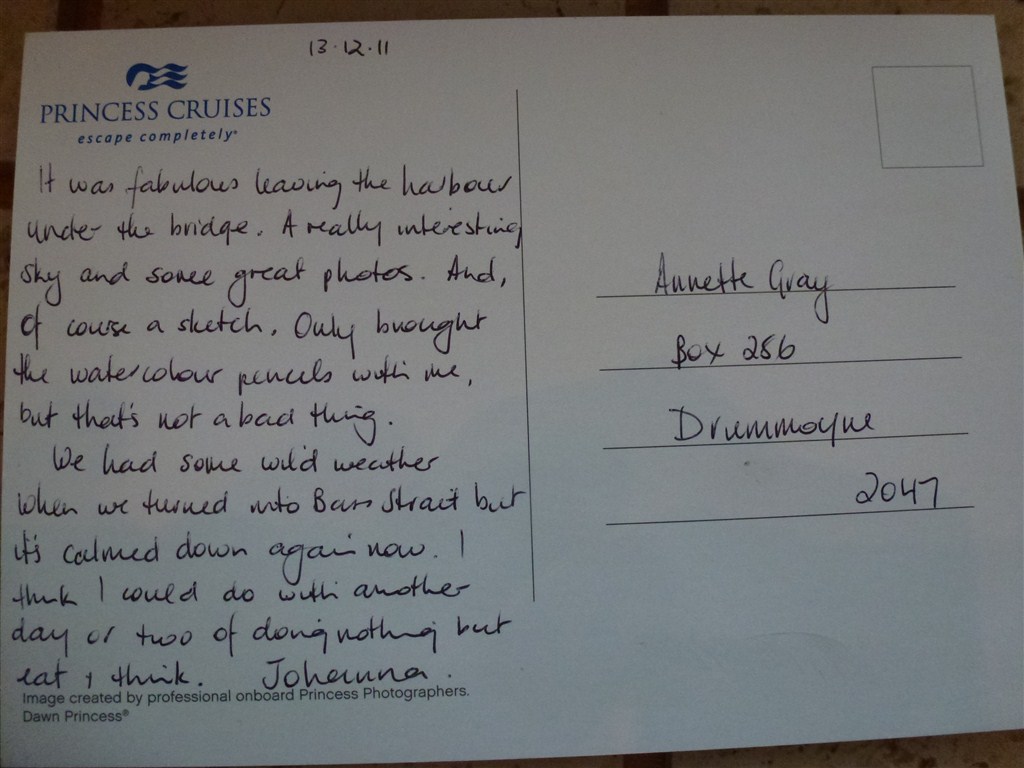 13.12.11
PRINCESS CRUISES
escape completely®
It was fabulous leaving the harbour
under the bridge. A really interesting
sky and some great photos. And,
of course a sketch. Only brought
the watercolour pencils with me,
but that's not a bad thing.
We had some wild weather
when we turned into Bass Strait but
it's calmed down again now. I
think I could do with another
day or two of doing nothing but
eat + think. Johanna.
Image created by professional onboard Princess Photographers.
Dawn Princess®
Annette Gray
Box 256
Drummoyne
2047